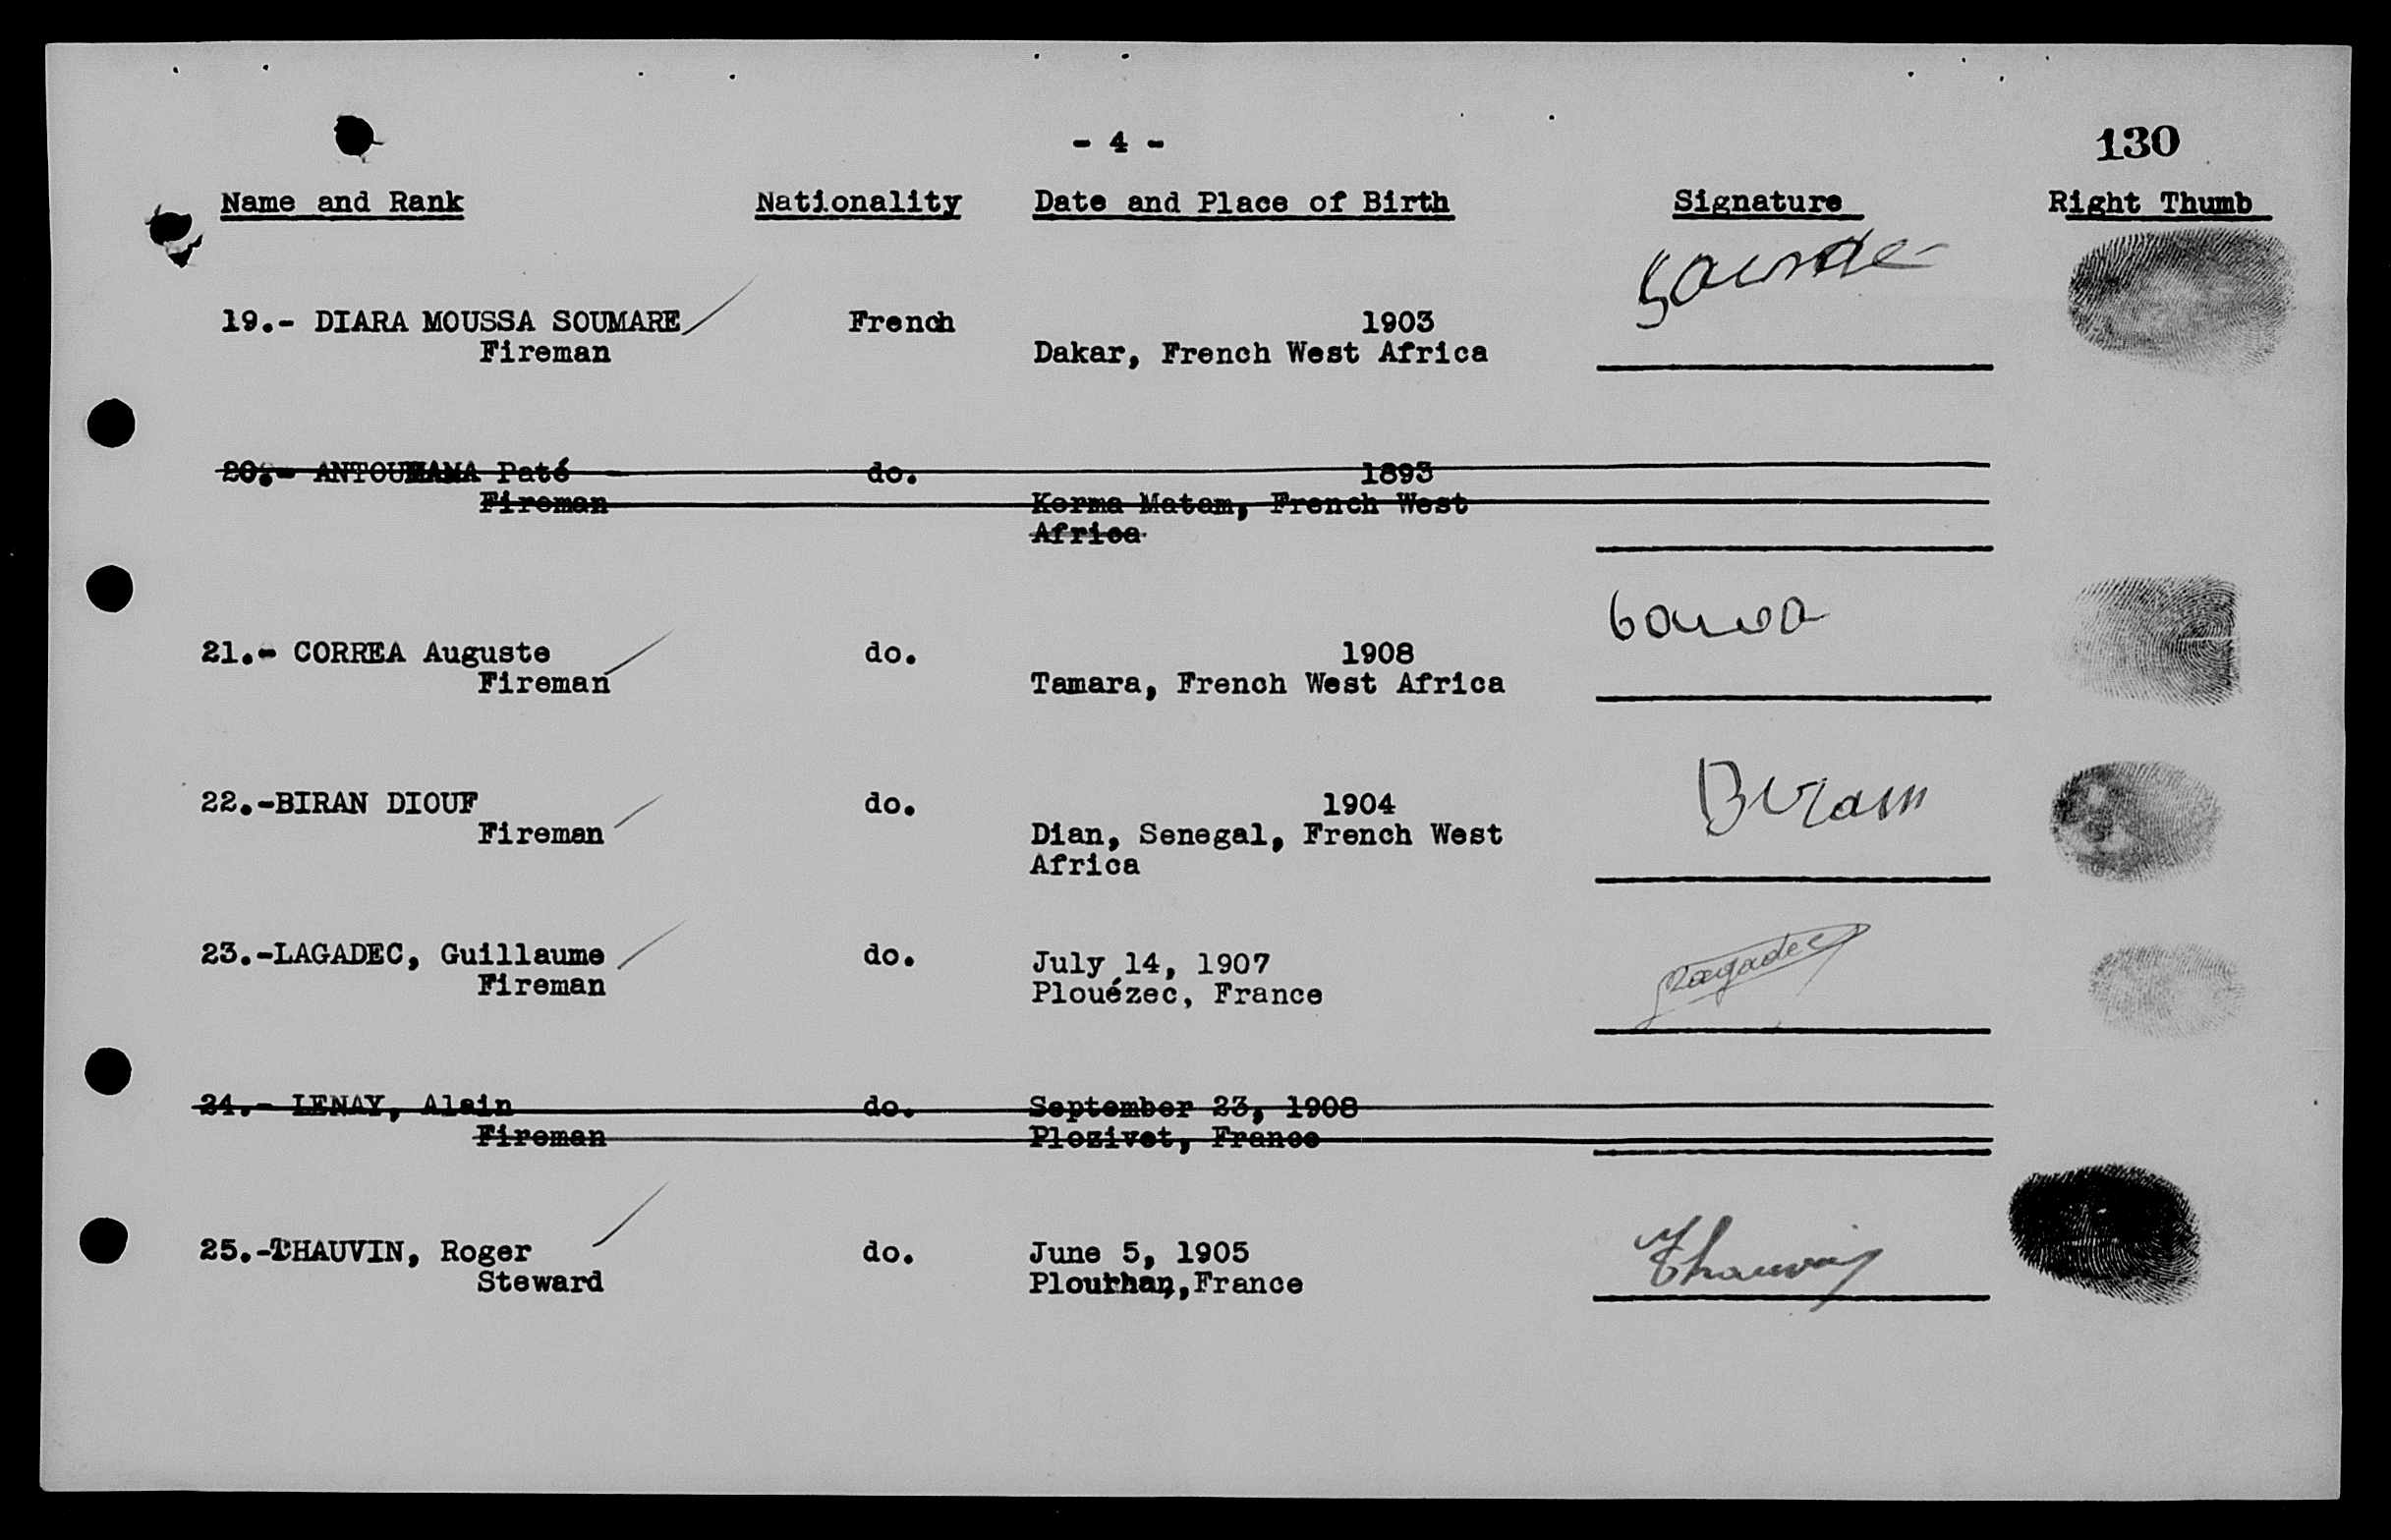 - 4 -
130
Name and Rank Nationality Date and Place of Birth Signature Right Thumb
19.- DIARA MOUSSA SOUMARE French 1903
Fireman Dakar, French West Africa
20.- Paté do. 1893
Fireman Korma Matam, French West
Africa
21.- CORREA Auguste do. 1908
Fireman Tamara, French West Africa
22.-BIRAN DIOUF do. 1904 Biram
Fireman Dian, Senegal, French West
Africa
23.-LAGADEC, Guillaume do. July 14, 1907 Lagadec
Fireman Plouézec, France
24.- LENAY, Alain do. September 23, 1908
Fireman Plozivet, France
25.-THAUVIN, Roger do. June 5, 1905 Thauvin
Steward Plourhan,France